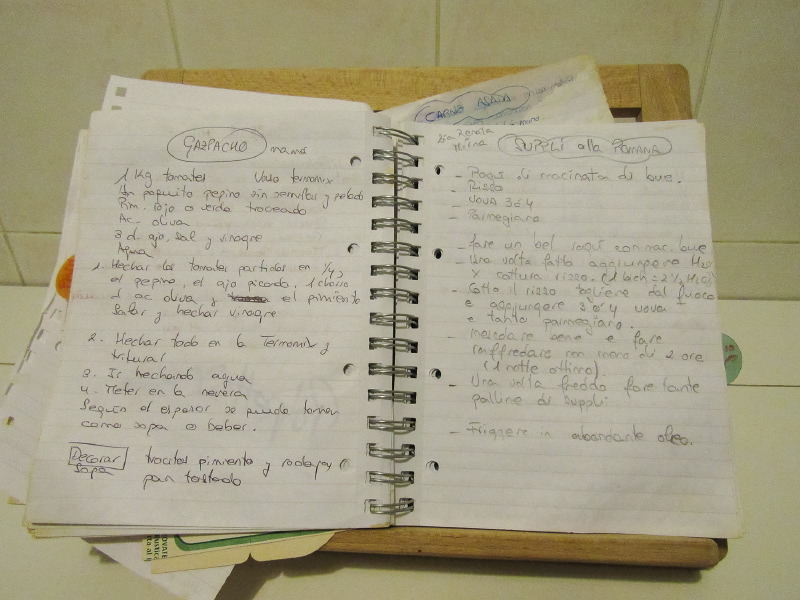 GAZPACHO mamá
1 Kg tomates Vaso termomix
Un poquito pepino sin semillas y pelado
Pim. rojo o verde troceado
Ac. oliva
3 d. ajo, sal y vinagre
Agua
1. Hechar los tomates partidos en 1/4,
el pepino, el ajo picado, 1 chorro
d ac oliva y el pimiento
Salar y hechar vinagre
2. Hechar todo en la Termomix y
triturar
3. Ir hechando agua
4. Meter en la nevera
Según el espesor se puede tomar
como sopa o beber.
Decorar trocitos pimiento y rodajas
Sopa pan tostado
CARNE ASADA
Zia Renata
SUPPLÍ alla ROMANA
- Ragú di macinata di bue.
- Riso
- UOVA 3 ó 4
- Parmegiano
- fare un bel ragú con mac. bue
- Una volta fatto aggiungere H2O
x cottura riso. (1 bich = 2 1/2 H2O)
- Cotto il riso togliere dal fuoco
e aggiungere 3 ó 4 uova
e tanto parmegiano.
- Mescolare bene e fare
raffredare non meno di 2 ore
(1 notte ottimo).
- Una volta freddo fare tante
palline di suppli
- Friggere in abondante oleo.